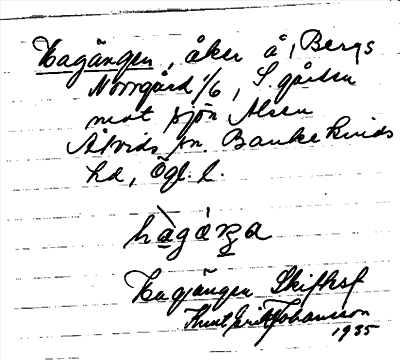 Hagängen, åker å, Bergs
Norrgård 1/6, S gården
mot sjön Alsen
Åtvids sn. Bankekinds
hd, Ögl. l.
Hagängen Skifksf
Knut Erik Johansson
1935